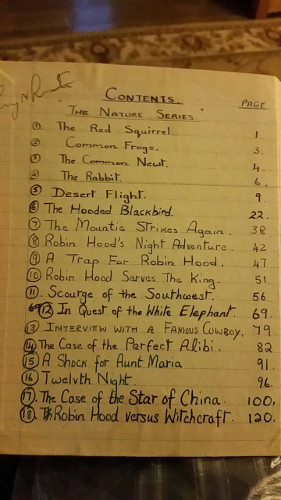 CONTENTS. PAGE
"THE NATURE SERIES"
① The Red Squirrel. 1.
② Common Frogs. 3.
③ The Common Newt. 4.
④ The Rabbit. 6.
⑤ Desert Flight. 9.
⑥ The Hooded Blackbird. 22.
⑦ The Mountie Strikes Again. 38
⑧ Robin Hood's Night Adventure. 42
⑨ A Trap For Robin Hood. 47
⑩ Robin Hood Serves The King. 51
⑪ Scourge of the Southwest. 56
⑫ In Quest of the White Elephant. 69.
⑬ INTERVIEW WITH A FAMOUS COWBOY. 79
⑭ The Case of the Perfect Alibi. 82
⑮ A Shock for Aunt Maria 91.
⑯ Twelvth Night. 96.
⑰ The Case of the Star of China. 100.
⑱ Robin Hood versus Witchcraft. 120.